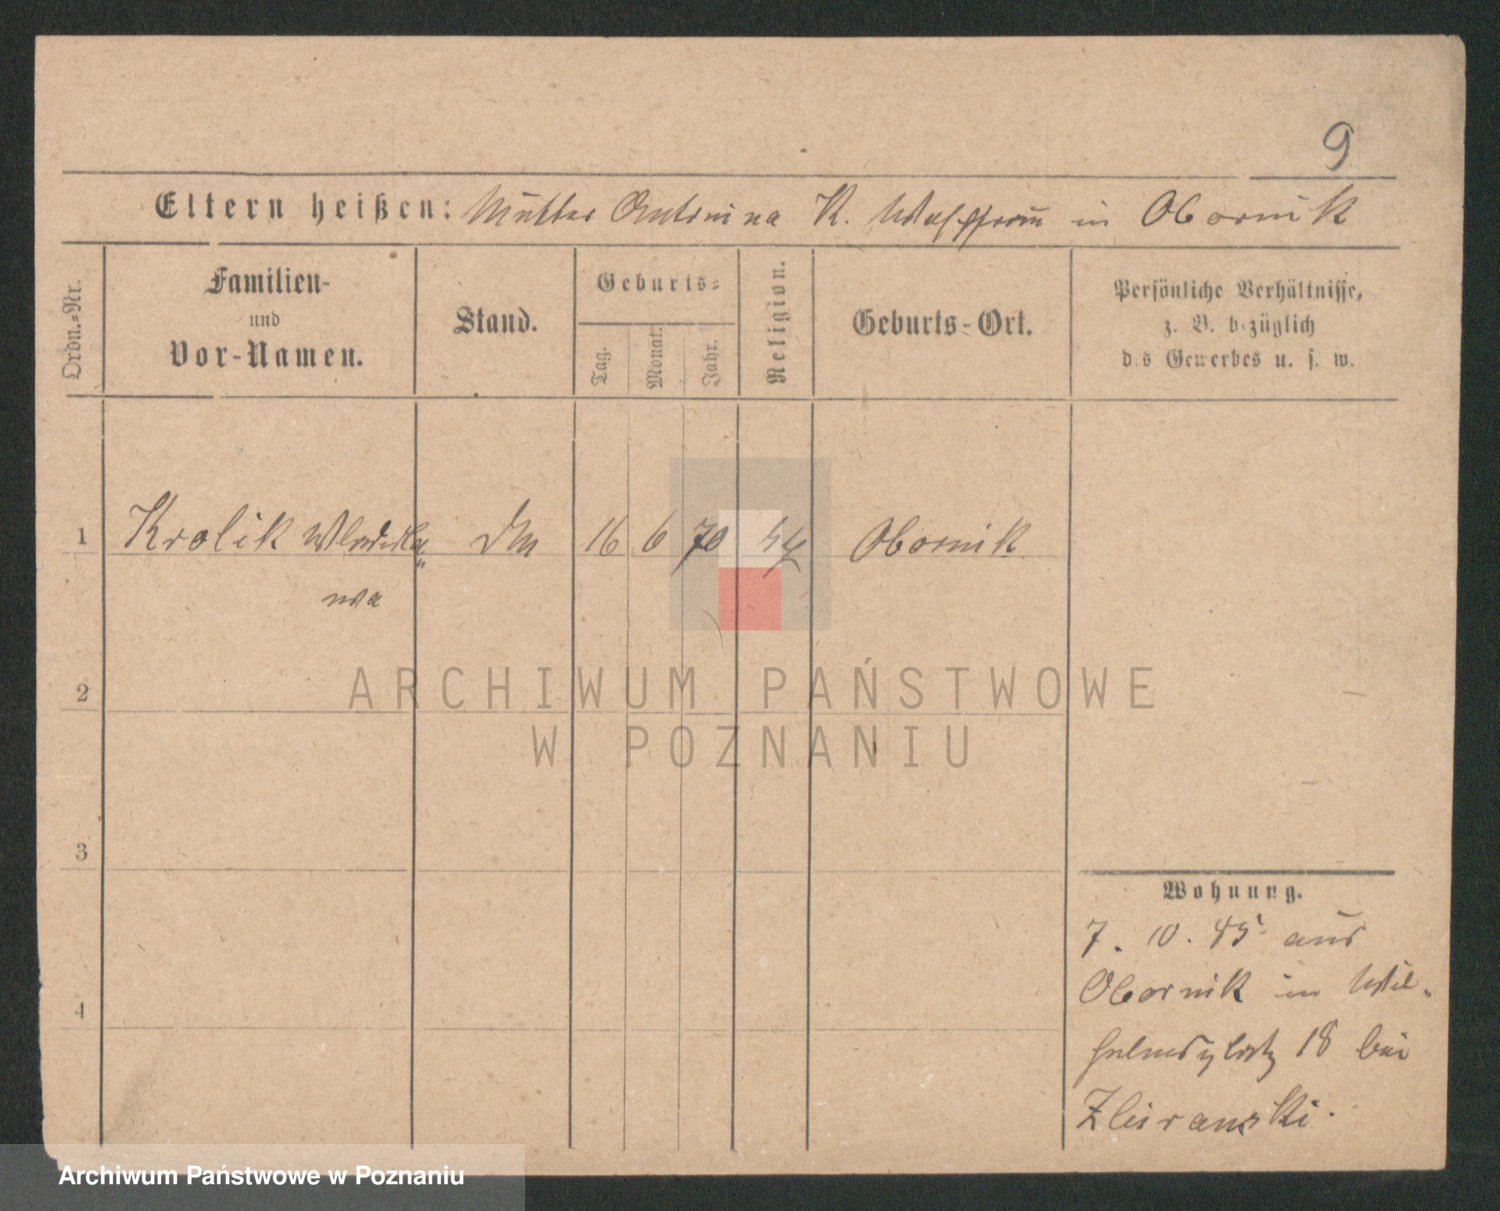 9
Eltern heißen: Mutter Antonina K. Waschfrau in Obornik
Ordn.-Nr.
Familien-
und
Vor-Namen.
Stand.
Geburts-
Tag.
Monat.
Jahr.
Religion.
Geburts-Ort.
Persönliche Verhältnisse,
z. B. bezüglich
des Gewerbes u. s. w.
1 Krolik Wladisla- 16 6 70 kth Obornik
wa
2
3
4
Wohnung.
7. 10. 85 aus
Obornik in Wil-
helmsplatz 18 bei
ARCHIWUM PAŃSTWOWE
W POZNANIU
Archiwum Państwowe w Poznaniu